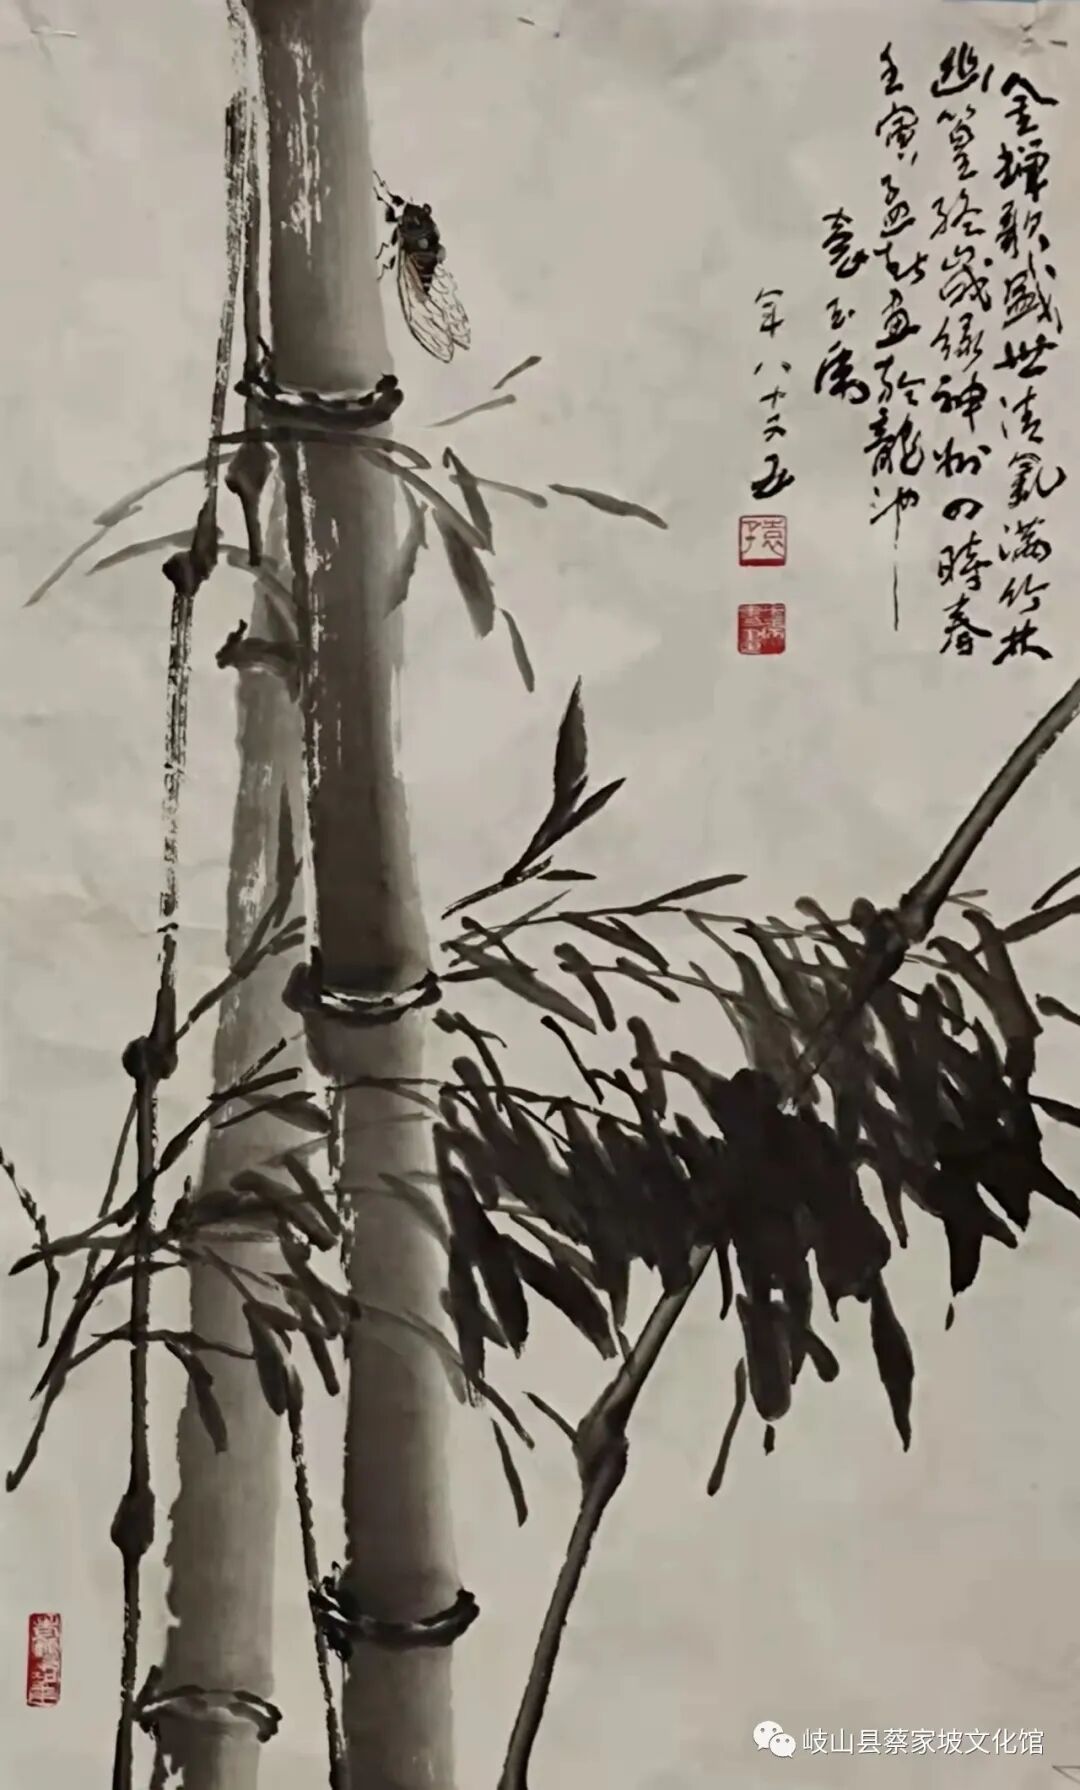 金蝉歌盛世清氣满竹林
幽篁终歲绿神州四時春
壬寅孟秋画於龍池
袁玉儒
年八十又五
岐山县蔡家坡文化馆